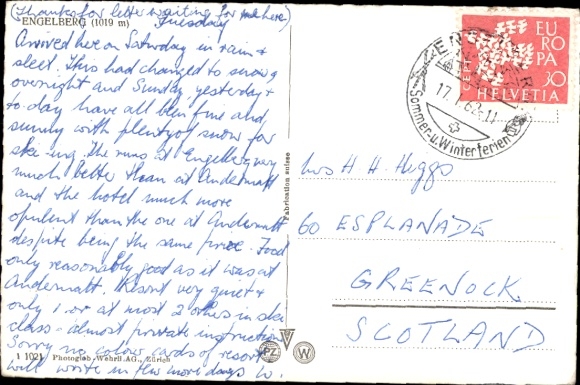 (Thanks for letter waiting for me here)
ENGELBERG (1019 m) Tuesday
Arrived here on Saturday in rain &
sleet. This had changed to snow
overnight and Sunday, yesterday &
to-day have all been fine and
sunny with plenty of snow for
ski-ing. The runs at Engelberg very
much better than at Andermatt
and the hotel much more
opulent than the one at Andermatt
despite being the same price. Food
only reasonably good as it was at
Andermatt. Resort very quiet &
only 1 or at most 2 others in ski
class - almost private instruction
Sorry no colour cards of resort
will write in few more days W.
1 1021 Photoglob-Wehrli AG., Zürich
Fabrication suisse
PZ W
Mrs H. H. Higgs
60 ESPLANADE
GREENOCK
SCOTLAND
ENGELBERG
17.1.62-11
Sommer-u.Winterferien
EUROPA
CEPT
30
HELVETIA